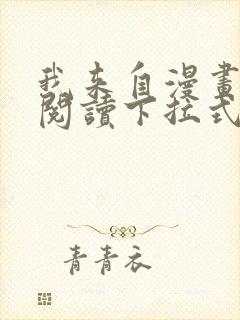 我来自漫畫
閱讀下拉式
青青衣